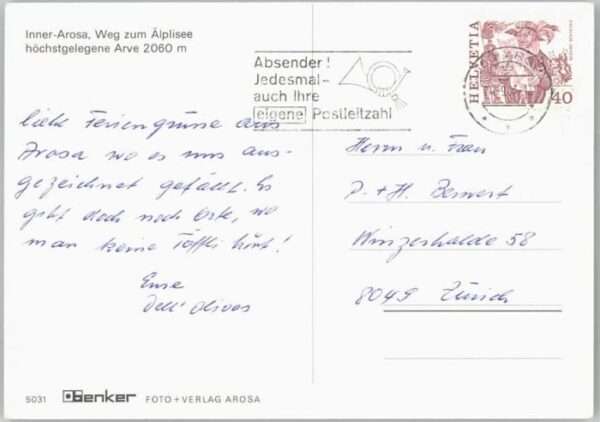 Inner-Arosa, Weg zum Älplisee
höchstgelegene Arve 2060 m
Absender!
Jedesmal-
auch Ihre
eigene Postleitzahl
HELVETIA
40
liebe Feriengrüsse aus
Arosa wo es uns aus-
gezeichnet gefällt. Es
gibt doch noch Orte, wo
man keine Töffli hört!
Eure
Herrn u. Frau
P. + H. Bewert
Winzerhalde 58
8049 Zürich
5031 Benker FOTO + VERLAG AROSA